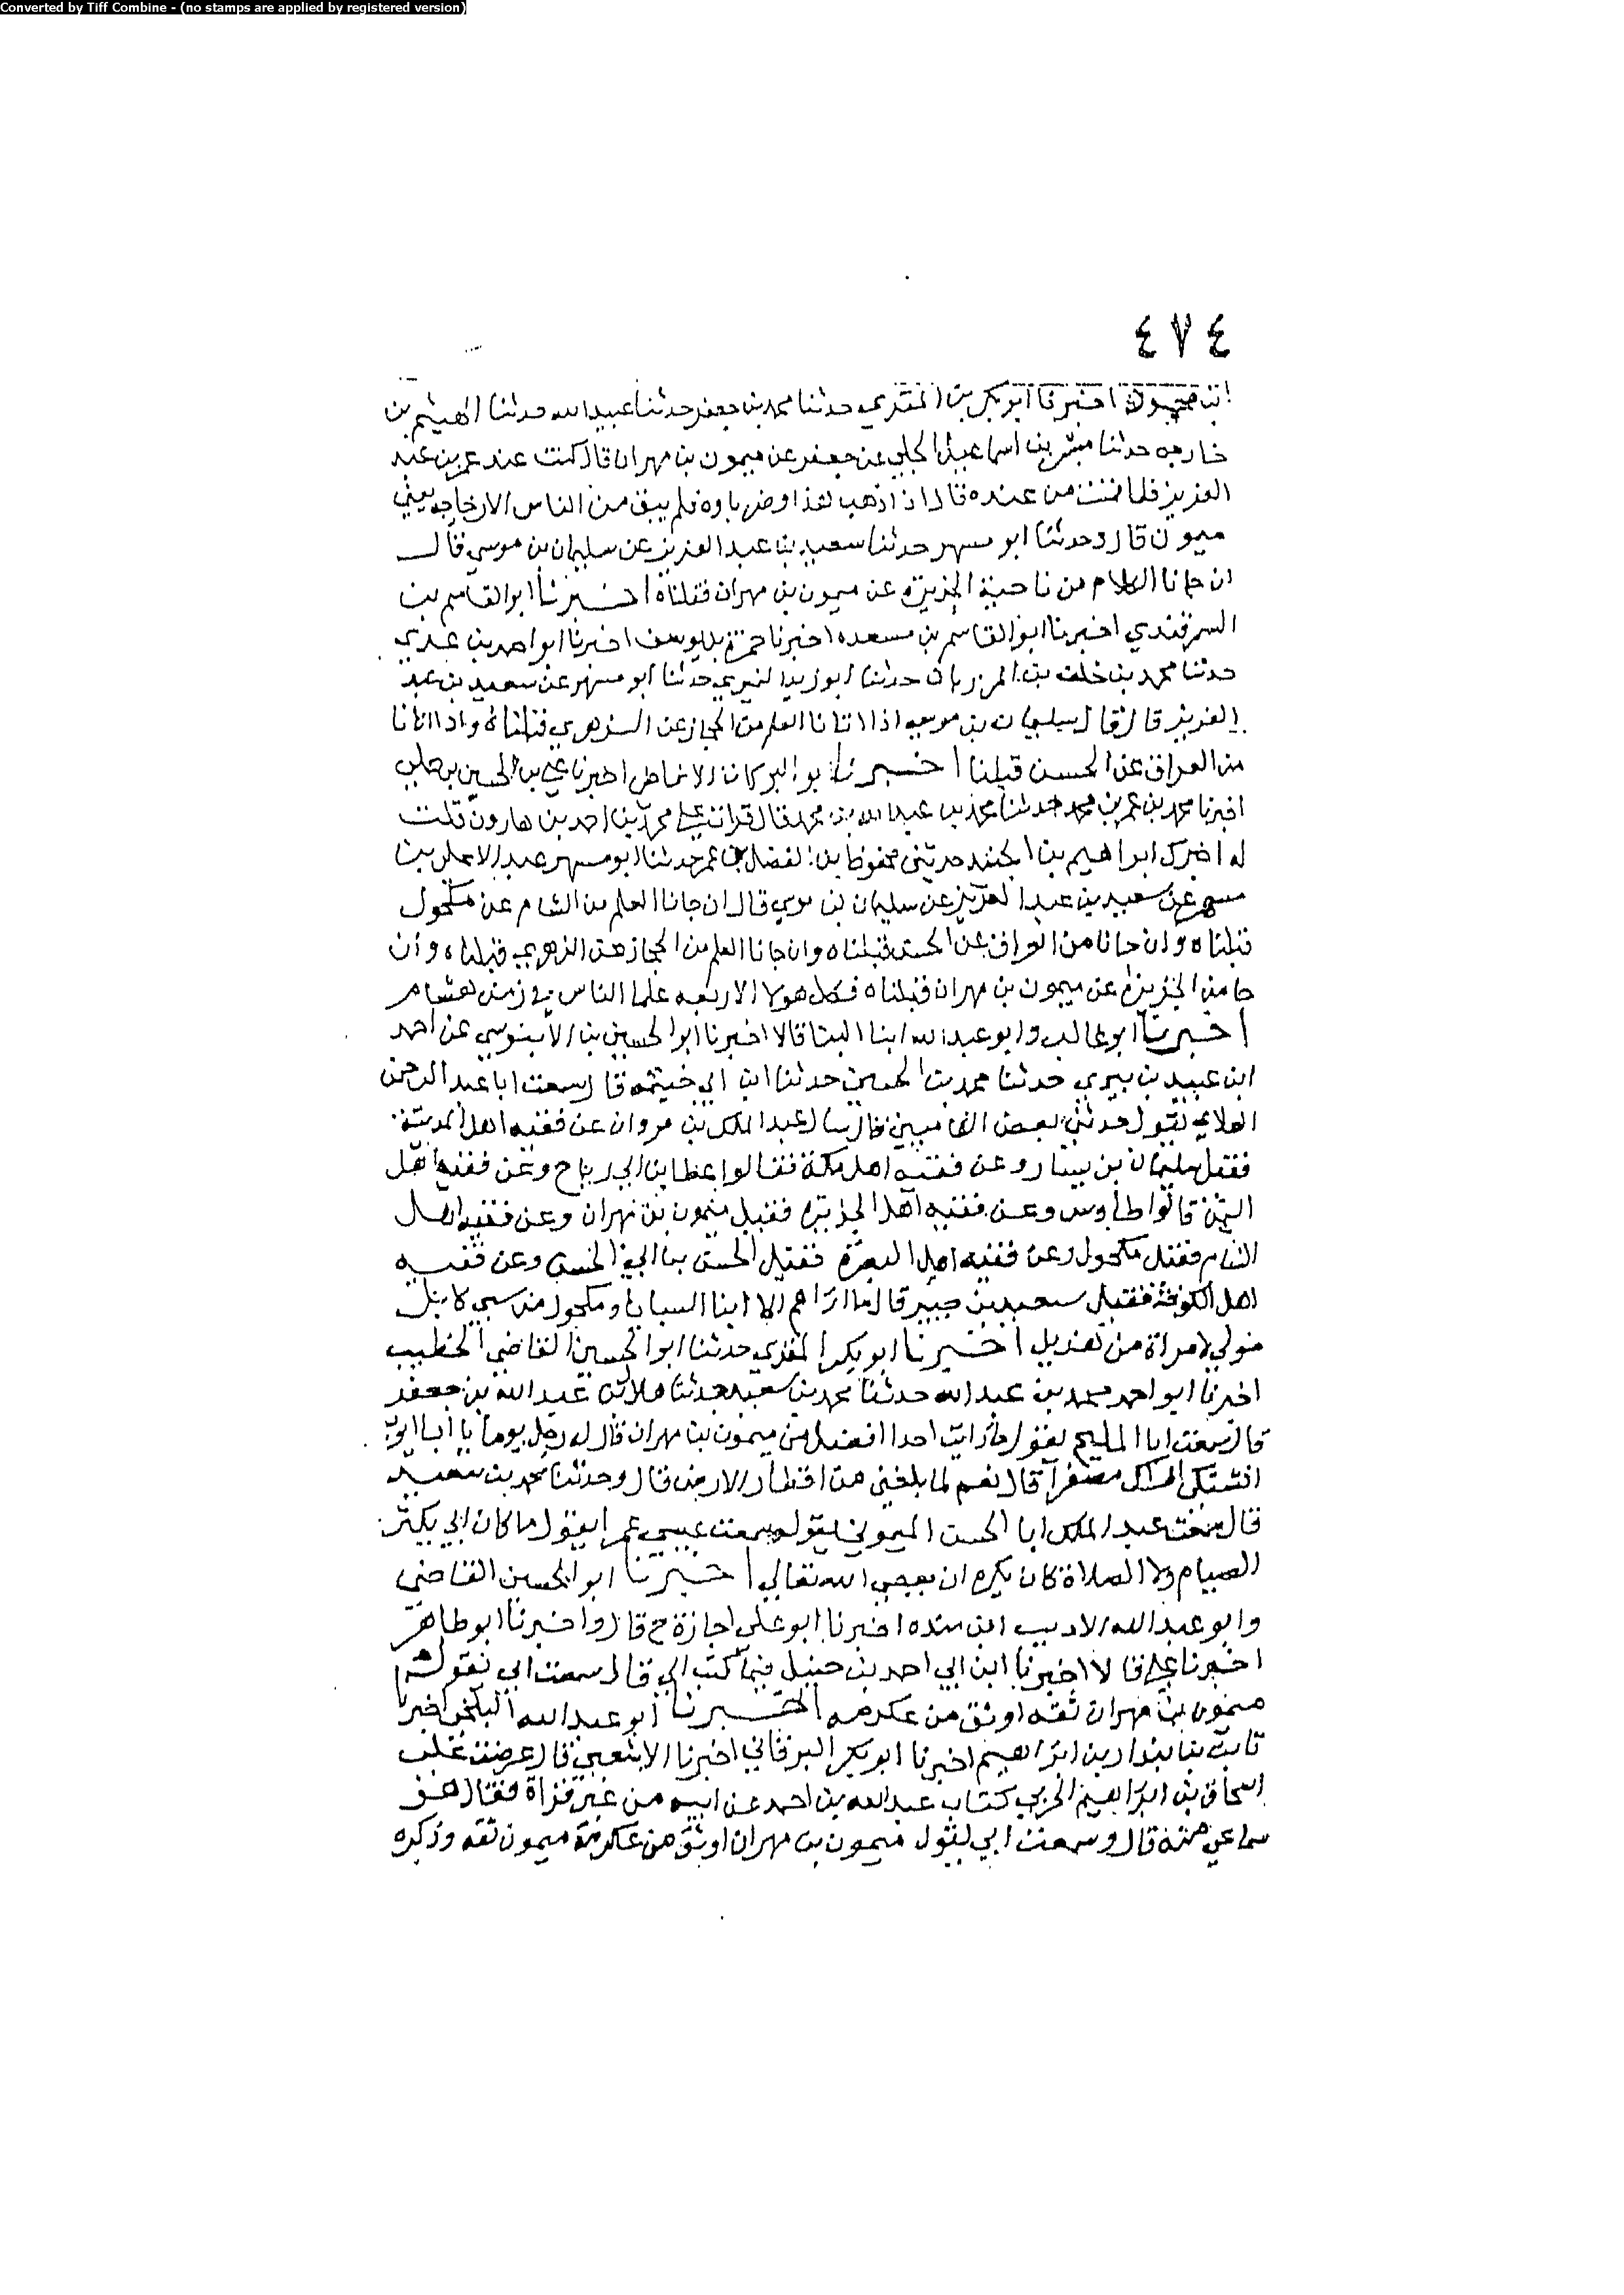 Converted by Tiff Combine - (no stamps are applied by registered version)
٤٧٤
اخبرنا ابو بكر بن المقري حدثنا محمد بن جعفر حدثنا عبيد الله حدثنا الهيثم بن
خارجه حدثنا مبشر بن اسماعيل الحلبي عن جعفر عن ميمون بن مهران قال كنت عند عمر بن عبد
العزيز فلما قمت من عنده قال اذا ذهب هذا وضرباوه فلم يبق من الناس الا رجاجه يعني
ميمون قال وحدثنا ابو مسهر حدثنا سعيد بن عبد العزيز عن سليمان بن موسي قال
ان جانا العلام من ناحية الجزيرة عن ميمون بن مهران قبلناه اخبرنا ابو القاسم بن
السمرقندي اخبرنا ابو القاسم بن مسعده اخبرنا حمزة بن يوسف اخبرنا ابو احمد بن عدي
حدثنا محمد بن خلف بن المرزبان حدثنا ابو زيد النميري حدثنا ابو مسهر عن سعيد بن عبد
العزيز قال قال سليمان بن موسي اذا اتانا العلم من الحجاز عن الزهري قبلناه واذا اتانا
من العراق عن الحسن قبلنا اخبرنا ابو البركات الانماطي اخبرنا علي بن الحسين بن
اخبرنا محمد بن عمر بن محمد حدثنا محمد بن عبد الله بن محمد قال قرات علي محمد بن احمد بن هارون قلت
له اخبرك ابراهيم بن الجنيد حدثني محفوظ بن الفضل بن عمر حدثنا ابو مسهر عبد الاعلي بن
مسهر عن سعيد بن عبد العزيز عن سليمان بن موسي قال ان جانا العلم من الشام عن مكحول
قبلناه وان جانا من العراق عن الحسن قبلناه وان جانا العلم من الحجاز عن الزهري قبلناه وان
جا من الجزيرة عن ميمون بن مهران قبلناه فكل هولا الاربعه علما الناس في زمن هشام
اخبرنا ابو غالب وابو عبد الله ابنا البنا قالا اخبرنا ابو الحسين بن الابنوسي عن احمد
ابن عبيد بن بيري حدثنا محمد بن الحسين حدثنا ابن ابي خيثمه قال سمعت ابا عبد الرحمن
العلاي يقول حدثني بعض الشاميين قال سال عبد الملك بن مروان عن فقيه اهل المدينة
فقيل سليمان بن يسار وعن فقيه اهل مكة فقالوا عطا بن ابي رباح وعن فقيه اهل
اليمن قالوا طاوس وعن فقيه اهل الجزيره فقيل ميمون بن مهران وعن فقيه اهل
الشام فقيل مكحول وعن فقيه اهل البصرة فقيل الحسن بن ابي الحسن وعن فقيه
اهل الكوفة فقيل سعيد بن جبير قال ما اراهم الا ابنا السبايا ومكحول من سبي كابل
مولي لامراة من هذيل اخبرنا ابو بكر المقري حدثنا ابو الحسين القاضي الخطيب
اخبرنا ابو احمد محمد بن عبد الله حدثنا محمد بن سعيد حدثنا هلال بن عبد الله بن جعفر
قال سمعت ابا المليح يقول ما رايت احدا افضل من ميمون بن مهران قال له رجل يوما يا ابا ايوب
اتشتكي اراك مصفرا قال نعم لما بلغني من اقطار الارض قال وحدثنا محمد بن سعيد
قال سمعت عبد الملك ابا الحسن الميموني يقول سمعت عمي عمرا يقول ما كان ابي يكثر
الصيام ولا الصلاة كان يكره ان يعصي الله تعالي اخبرنا ابو الحسين القاضي
وابو عبد الله الاديب ابن منده اخبرنا ابو علي اجازة ح قال واخبرنا ابو طاهر
اخبرنا علي قالا اخبرنا ابن ابي احمد بن حنبل فيما كتب الي قال سمعت ابي يقول
ميمون بن مهران ثقه اوثق من عكرمه اخبرنا ابو عبد الله البلخي اخبرنا
ثابت بن بندار بن ابراهيم اخبرنا ابو بكر البرقاني اخبرنا قال عرضت علي
اسحاق بن ابراهيم الحربي كتاب عبد الله بن احمد عن ابيه من غير قراة فقال هو
سماعي منه قال وسمعت ابي يقول ميمون بن مهران اوثق من عكرمة ميمون ثقه وذكره